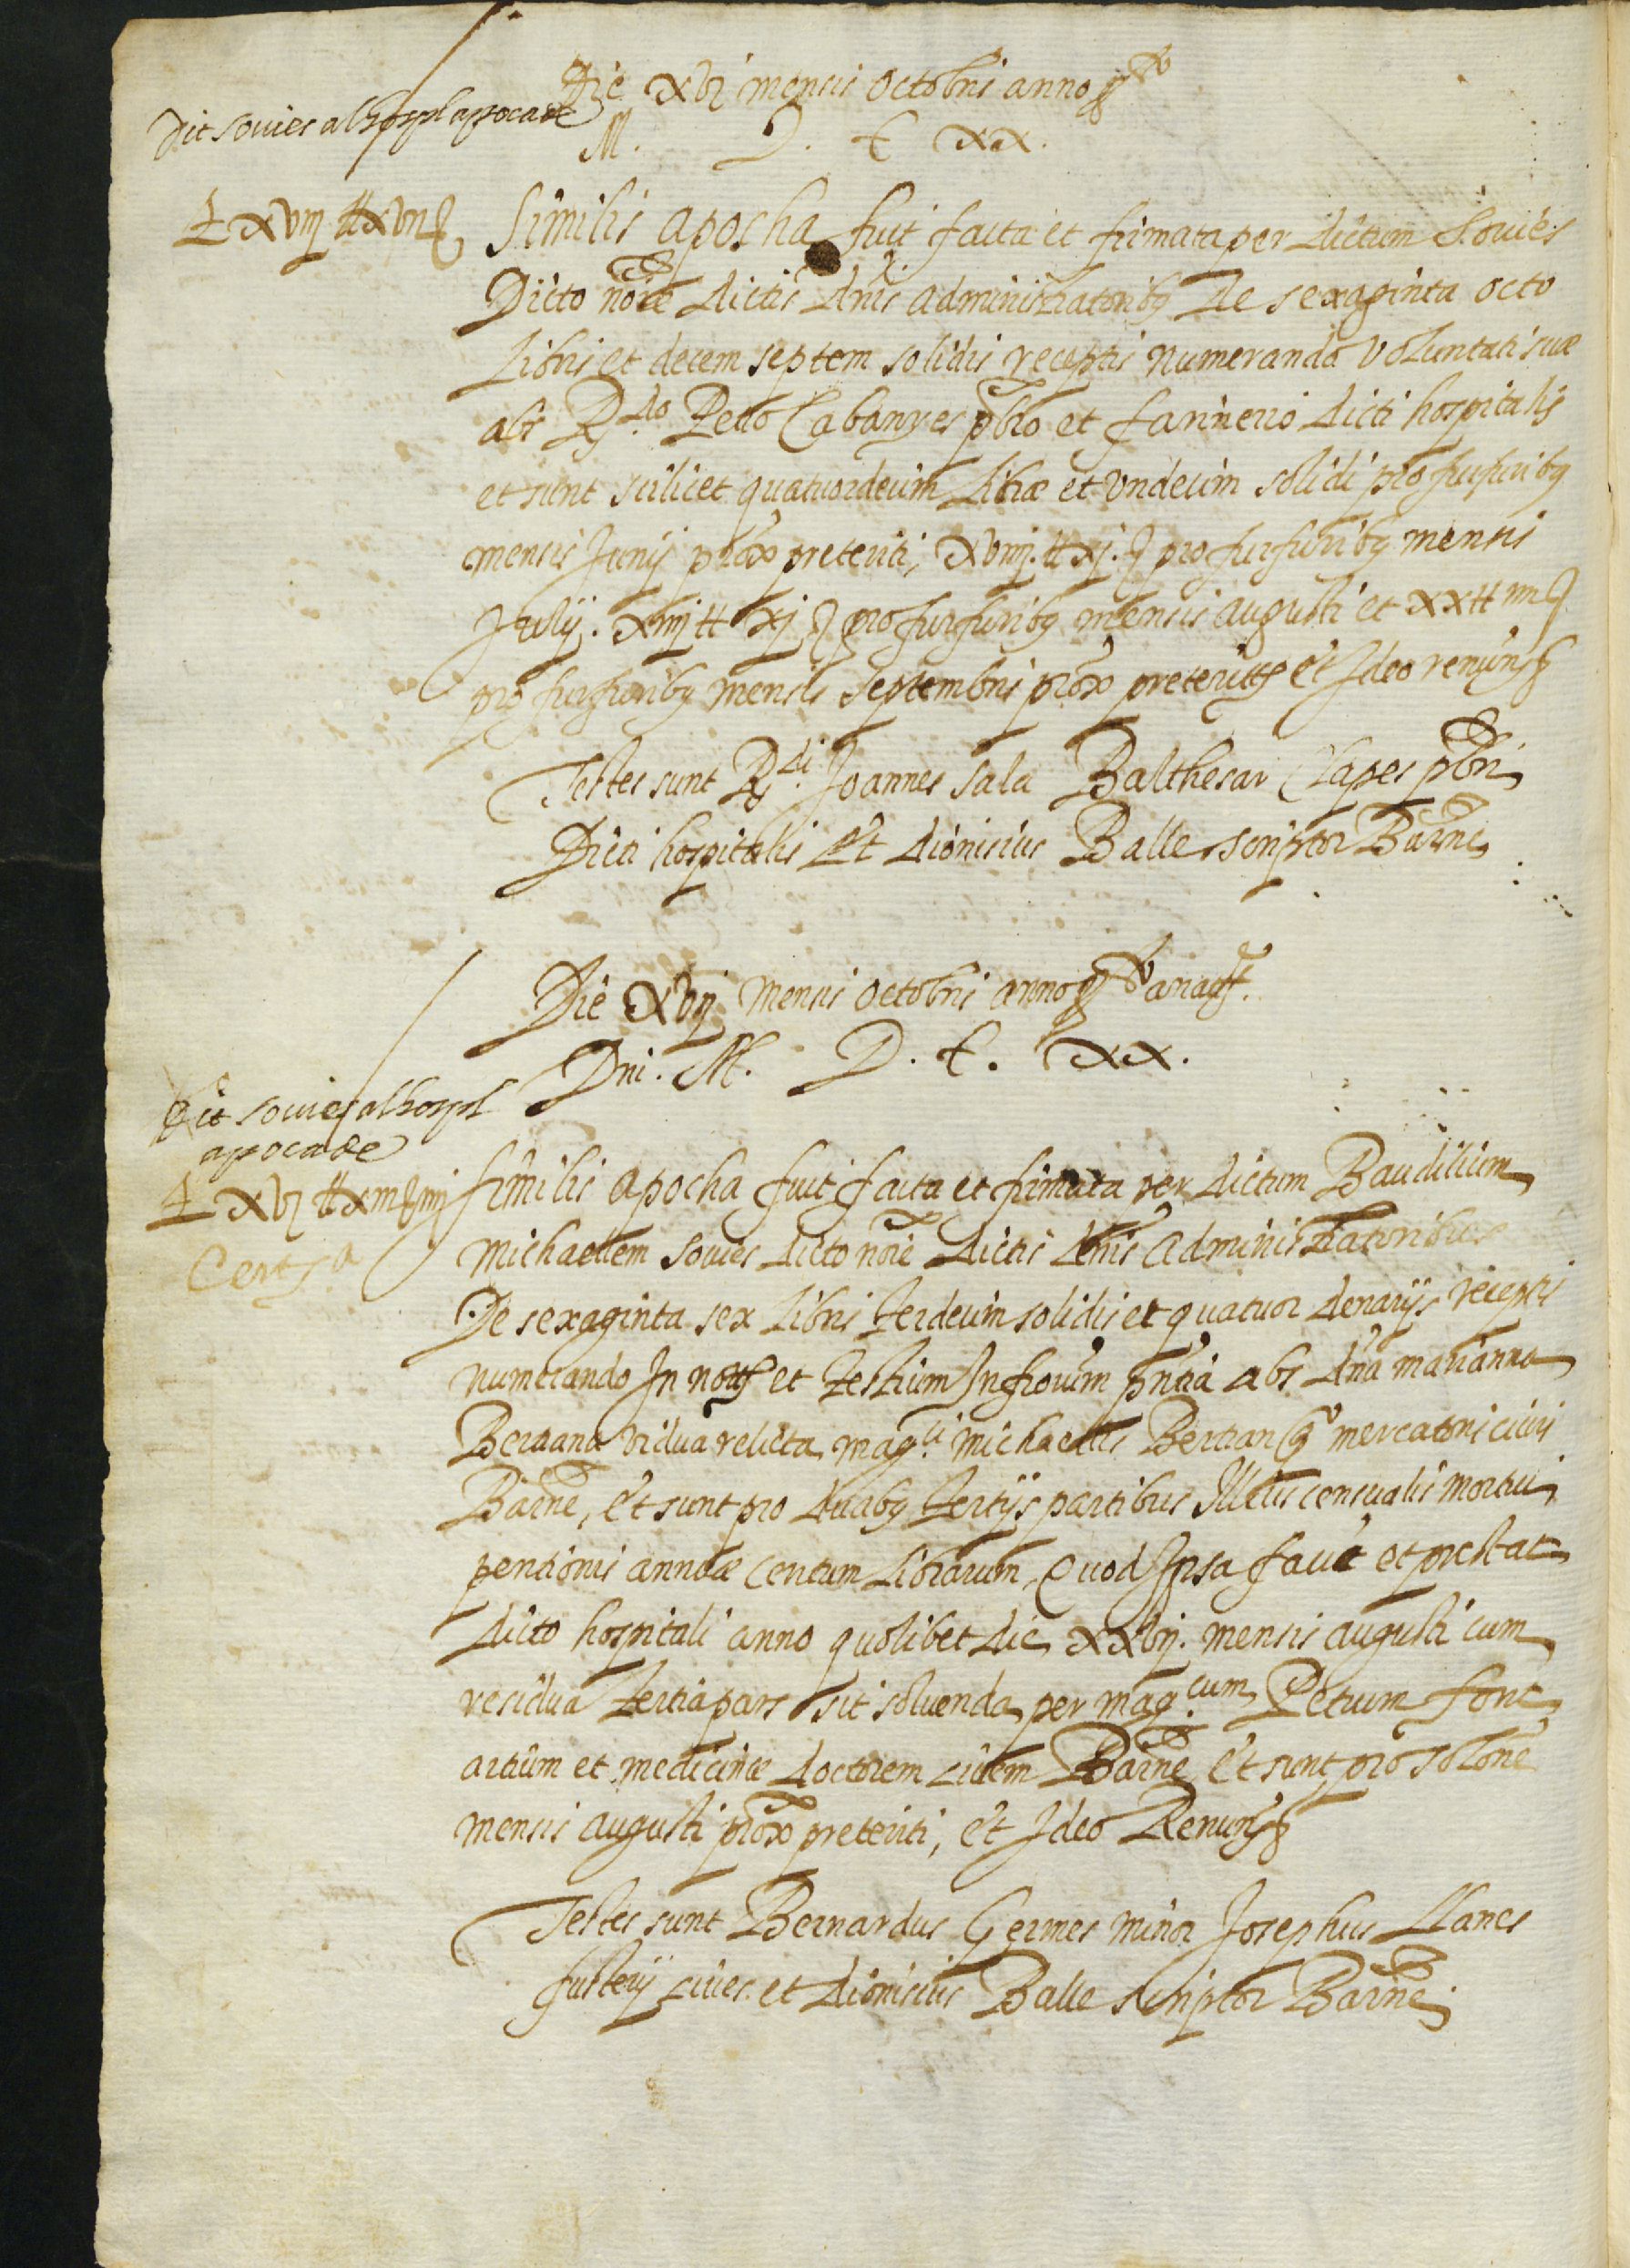 Die xvj mensis octobris anno
Dit Sovies al hospl apoca de
M. D. C xx.
Lxviij ll xvij s
Similis apocha fuit facta et firmata per dictum Sovies
Dicto noie dictis dnis administratoribq de sexaginta octo
Libris et decem septem solidis receptis numerando voluntati suæ
abs Rdo Petro Cabanyes pbro et farinerio dicti hospitalis
et sunt scilicet quatuordecim Libræ et undecim solidi pro furfuribq
mensis Junij prox preteriti, xviiij. ll xj. s pro furfuribq mensis
Julij. xiiij ll xj s pro furfuribq mensis augusti et xx ll iiij s
pro furfuribq mensis septembris prox preteritis et Ideo renuns
Testes sunt Rdi Joannes Sala Balthesar Clapes pbri
Dicti hospitalis Et dionisius Balle scriptor Barne
Die xvij mensis octobris anno a nat
Dni. M. D. C. xx.
Dit Sovies al hospl
apoca de
Lxvj ll xiii s iiij
Certa
Similis apocha fuit facta et firmata per dictum Baudilium
Michaelem Sovies dicto noie dictis dnis administratoribus
De sexaginta sex Libris terdecim solidis et quatuor denarijs receptis
numerando In not et testium Infrorum pntia abs dna marianna
Bertrana vidua relicta magci Michaelis Bertran q mercatoris civis
Barne, et sunt pro duabq tertijs partibus Illius censualis mortui
pentionis annuæ centum Librarum, Quod Ipsa facit et prestat
dicto hospitali anno quolibet die xxvij. mensis augusti cum
residua tertia pars sit solvenda per magcum Petrum font
artium et medicinæ doctorem civem Barne et sunt pro solone
mensis augusti prox preteriti, et Ideo Renuns
Testes sunt Bernardus Germes minor Josephus Llanes
fusterij cives et dionisius Balle scriptor Barne.